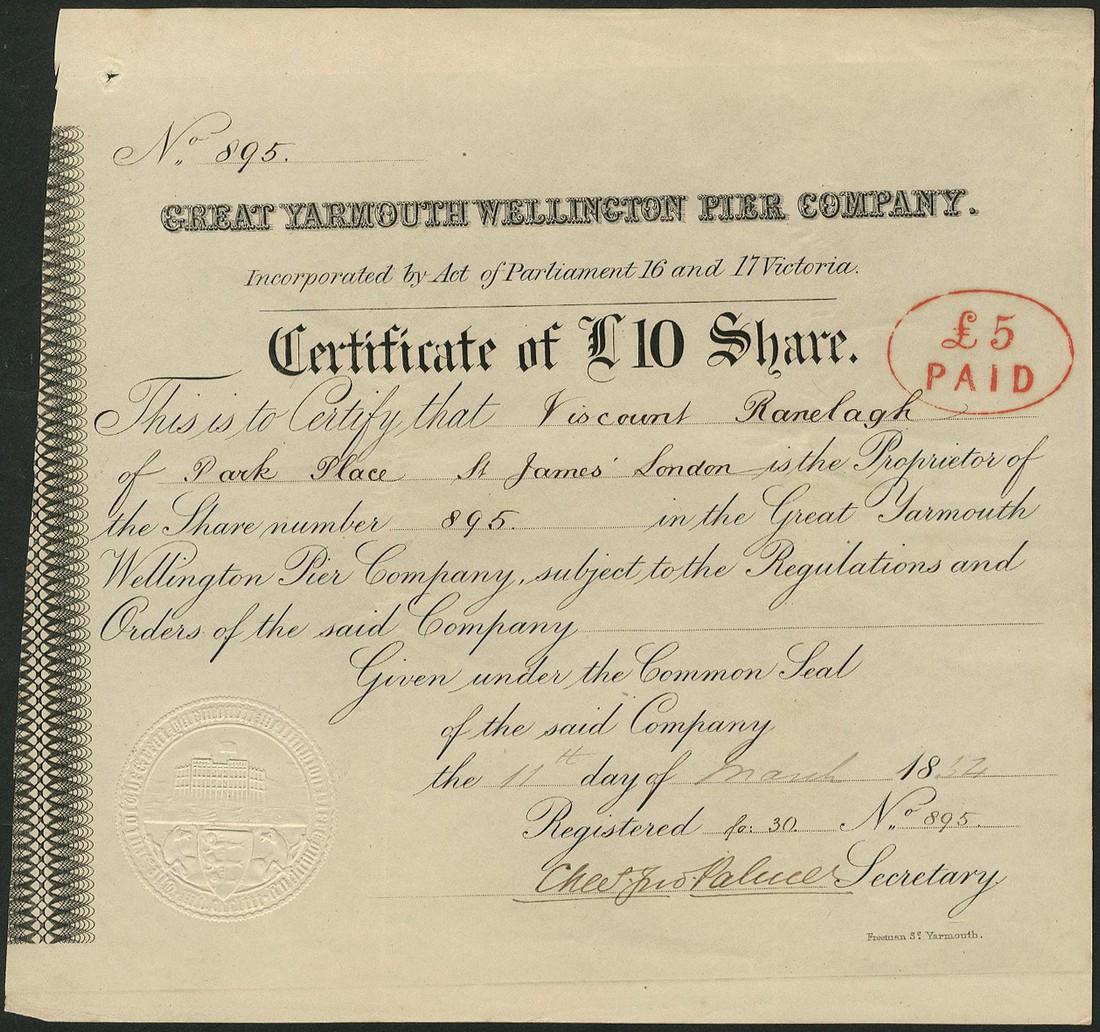 No. 895.
GREAT YARMOUTH WELLINGTON PIER COMPANY.
Incorporated by Act of Parliament 16 and 17 Victoria.
Certificate of £10 Share.
£5
PAID
This is to Certify that Viscount Ranelagh
of Park Place St James' London is the Proprietor of
the Share number 895. in the Great Yarmouth
Wellington Pier Company, subject to the Regulations and
Orders of the said Company
Given under the Common Seal
of the said Company
the 11th day of March 1854
Registered fo: 30. No. 895.
Chas. Jno. Palmer Secretary
Freeman Sc. Yarmouth.